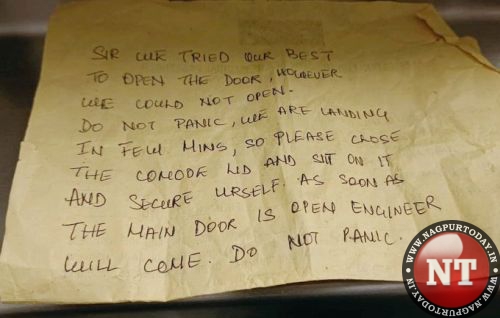 SIR WE TRIED OUR BEST
TO OPEN THE DOOR, HOWEVER
WE COULD NOT OPEN.
DO NOT PANIC, WE ARE LANDING
IN FEW MINS, SO PLEASE CLOSE
THE COMODE LID AND SIT ON IT
AND SECURE URSELF. AS SOON AS
THE MAIN DOOR IS OPEN ENGINEER
WILL COME. DO NOT PANIC.
• WWW.NAGPURTODAY.IN • WWW.NAGPURTODAY.IN
NT